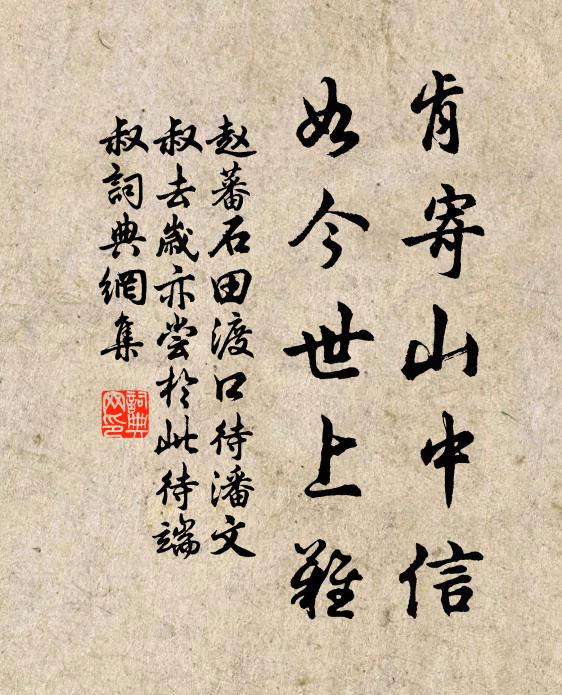 肯寄山中信
如今世上難
赵蕃石田渡口待潘文
叔去歲亦嘗於此待端
叔詞典網集
詞典
网印